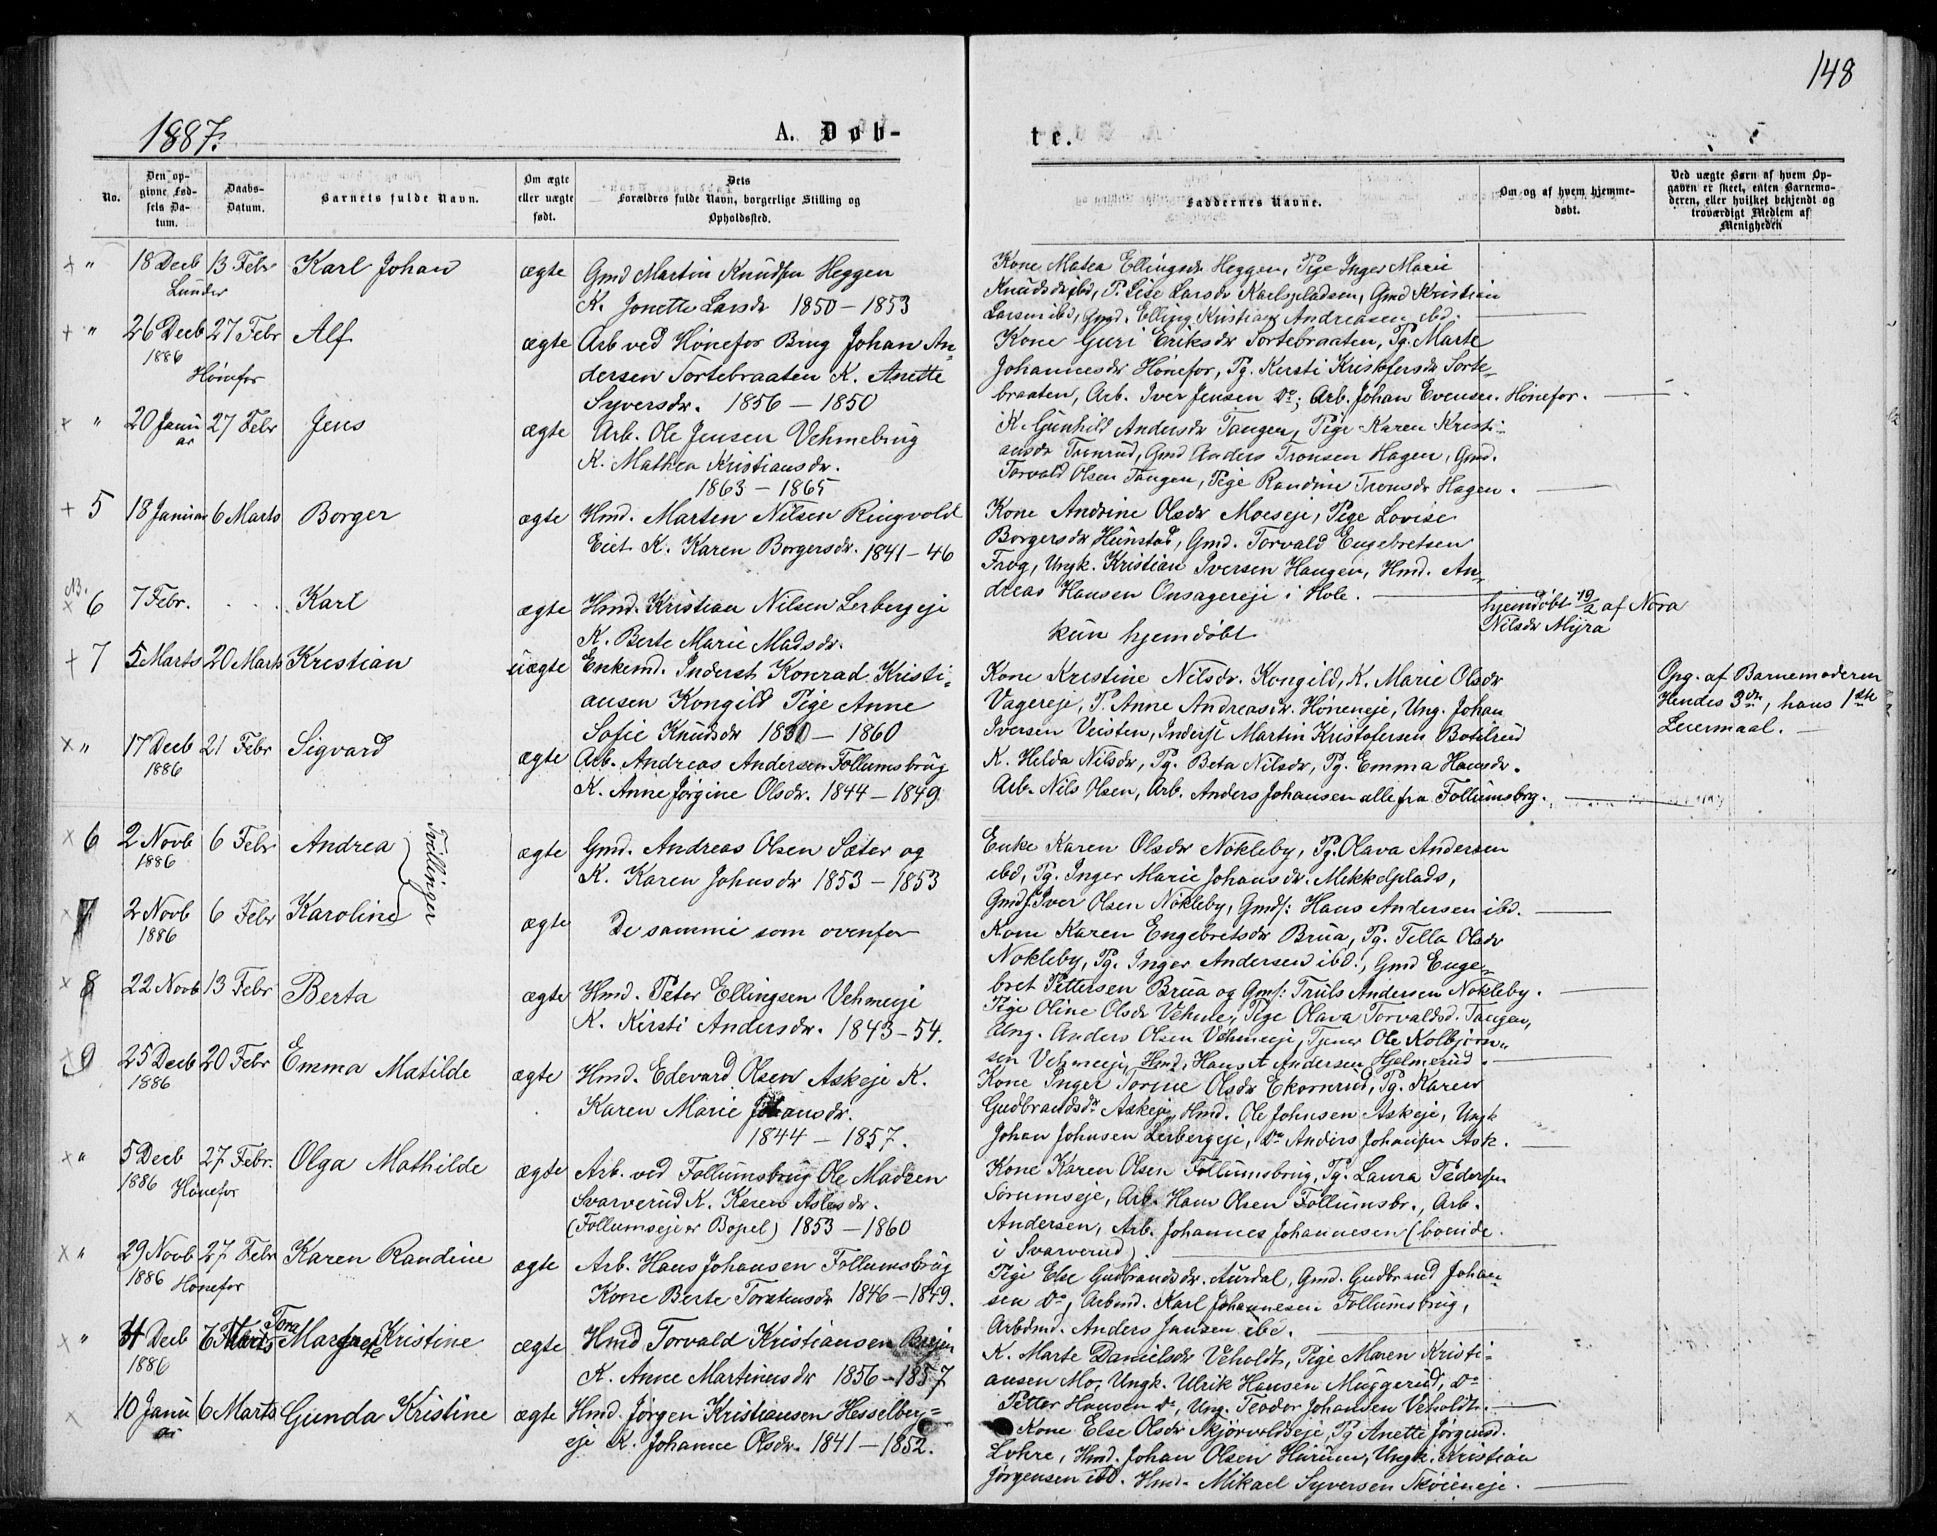 148
1887.
A. Døb-
te.
No.
Den op-
givne Fød-
sels Da-
tum.
Daabs-
Datum.
Barnets fulde Navn.
Om ægte
eller uægte
født.
Dets
Forældres fulde Navn, borgerlige Stilling og
Opholdssted.
Faddernes Navne.
Om og af hvem hjemme-
døbt.
Ved uægte Børn af hvem Op-
gaven er skeet, enten Barnemo-
deren, eller hvilket bekjendt og
troværdigt Medlem af
Menigheden
× " 18 Decb 13 Febr Karl Johan ægte Gmd Martin Knudsen Heggen
Lunder
K. Jonette Larsdr 1850 – 1853
Kone Matea Ellingsdr Heggen, Pige Inger Marie
Knudsdr ibd, P. Lise Larsdr Karlspladsen, Gmd Kristian
Larsen ibd, Gmd. Elling Kristian Andreasen ibd.
+ " 26 Decb 27 Febr Alf ægte Arb ved Hønefos Brug Johan An-
1886
Hønefos
dersen Tortebraaten K. Anette
Syversdr. 1856 – 1850
Kone Guri Eriksdr Tortebraaten, Pg. Marte
Johannesdr Hønefos, Pg. Kersti Kristofersdr Torte-
braaten, Arb. Iver Jensen Do; Arb. Johan Evensen Hønefos.
× " 20 Janu 27 Febr Jens ægte Arb. Ole Jensen Vehmebrug
ar
K. Mathea Kristiansdr.
1863 – 1865
K. Gunhild Andersdr Tangen, Pige Karen Kristi-
ansdr Tronrud, Gmd Anders Tronsen Hagen, Gmd.
Torvald Olsen Tangen, Pige Randine Tronsdr Hagen.
+ 5 18 Januar 6 Marts Borger ægte Hmd. Marten Nilsen Ringvold
Eiet K. Karen Borgersdr. 1841–46
Kone Andrine Olsdr Moeseje, Pige Lovise
Borgersdr Hunstad, Gmd. Torvald Engebretsen
Frog, Ungk. Kristian Iversen Haugen, Hmd. An-
dreas Hansen Onsagereje i Hole.
NB.
× 6 7 Febr. Karl ægte Hmd. Kristian Nilsen Lerbergeje
K. Berte Marie Madsdr.
kun hjemdøbt
hjemdøbt 19/2 af Nora
Nilsdr Myra
+ 7 5 Marts 20 Marts Kristian uægte Enkemd. Inderst Konrad Kristi-
ansen Kongild Pige Anne
Sofie Knudsdr 1830 – 1860
Kone Kristine Nilsdr. Kongild, K. Marie Olsdr
Vagereje, P. Anne Andreasdr. Høneneje, Ung. Johan
Iversen Veisten, Inderst Martin Kristofersen Botilrud
Opg. af Barnemoderen
Hendes 3die, hans 1ste
Leiermaal.
× " 17 Decb 21 Febr Sigvard ægte Arb. Andreas Andersen Follumsbrug
1886
K. Anne Jørgine Olsdr. 1844 – 1849
K. Helda Nilsdr, Pg. Beta Nilsdr, Pg. Emma Hansdr.
Arb. Nils Olsen, Arb. Anders Johansen alle fra Follumsbrg.
× 6 2 Novb 6 Febr Andrea ægte Gmd. Andreas Olsen Sæter og
1886
Tvillinger
K. Karen Johnsdr 1853 – 1853
Enke Karen Olsdr Nøkleby, Pg. Olava Andersen
ibd, Pg. Inger Marie Johansdr. Mikkelplads,
Gmds. Iver Olsen Nøkleby, Gmds: Hans Andersen ibd.
× 7 2 Novb 6 Febr Karoline ægte De samme som ovenfor
1886
Kone Karen Engebretsdr Brua, Pg. Tella Olsdr
Nøkleby, Pg. Inger Andersen ibd., Gmd Enge-
bret Pettersen Brua og Gms: Truls Andersen Nøkleby.
× 8 22 Novb 13 Febr Berta ægte Hmd. Peter Ellingsen Vehmeeje
K. Kirsti Andersdr. 1843–54.
Pige Oline Olsdr Vehme, Pige Olava Torvaldsd. Tangen,
Ung. Anders Olsen Vehmeeje, Tjener Ole Kolbjørn-
sen Vehmeeje, Hmd. Hans A Andersen Hjelmerud.
× 9 25 Decb 20 Febr Emma Matilde ægte Hmd. Edevard Olsen Askeje K.
1886
Karen Marie Johansdr.
1844 – 1857.
Kone Inger Torine Olsdr Ekornrud, Pg. Karen
Gudbrandsdr Askeje, Hmd. Ole Johnsen Askeje, Ungk
Johan Johnsen Lerbergeje, Do Anders Johansen Ask.
× " 5 Decb 27 Febr. Olga Mathilde ægte Arb. ved Follumsbrug Ole Madsen
1886 Hønefos
Svarverud K. Karen Aslesdr.
(Follumseje er Bopel) 1853 – 1860
Kone Karen Olsen Follumsbrug, Pg. Laura Pedersen
Sørumseje, Arb. Hans Olsen Follumsbr., Arb.
Andersen, Arb. Johannes Johannesen (boende
i Svarverud).
× " 29 Novb 27 Febr Karen Randine ægte Arb. Hans Johansen Follumsbrug
1886 Hønefos
Kone Berte Torstensdr 1846 – 1849.
Pige Else Gudbrandsdr. Aurdal, Gmd. Gudbrand Johan-
sen Do, Arbmd. Karl Johannesen Follumsbrug,
Arbdmd. Anders Jansen ibd.
× " 31 Decb 6 Marts Tora Margrete Kristine ægte Hmd Torvald Kristiansen
1886
K. Anne Martinusdr 1856 – 1857
K. Marte Danielsdr Veholdt, Pige Maren Kristi-
ansen Mo, Ungk. Ulrik Hansen Muggerud, Do
Petter Hansen Do, Ung. Teodor Johansen Veholdt.
× 10 Janu 6 Marts Gunda Kristine ægte Hmd. Jørgen Kristiansen Hesselber-
ar
eje K. Johanne Olsdr. 1841 – 1852.
Kone Else Olsdr Skjørvoldseje, Pg Anette Jørgensd.
Lohre, Hmd. Johan Olsen Hurum, Ungk. Kristian
Jørgensen ibd. Hmd. Mikael Syversen Skøieneje.